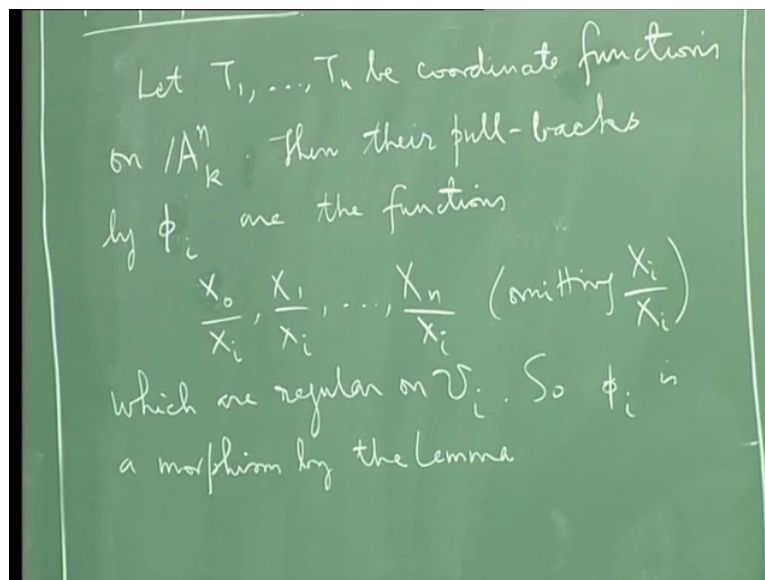 Let T₁, ..., Tₙ be coordinate functions
on /Aⁿₖ. Then their pull-backs
by ϕᵢ are the functions
X₀/Xᵢ, X₁/Xᵢ, ..., Xₙ/Xᵢ (omitting Xᵢ/Xᵢ)
which are regular on Uᵢ. So ϕᵢ is
a morphism by the Lemma